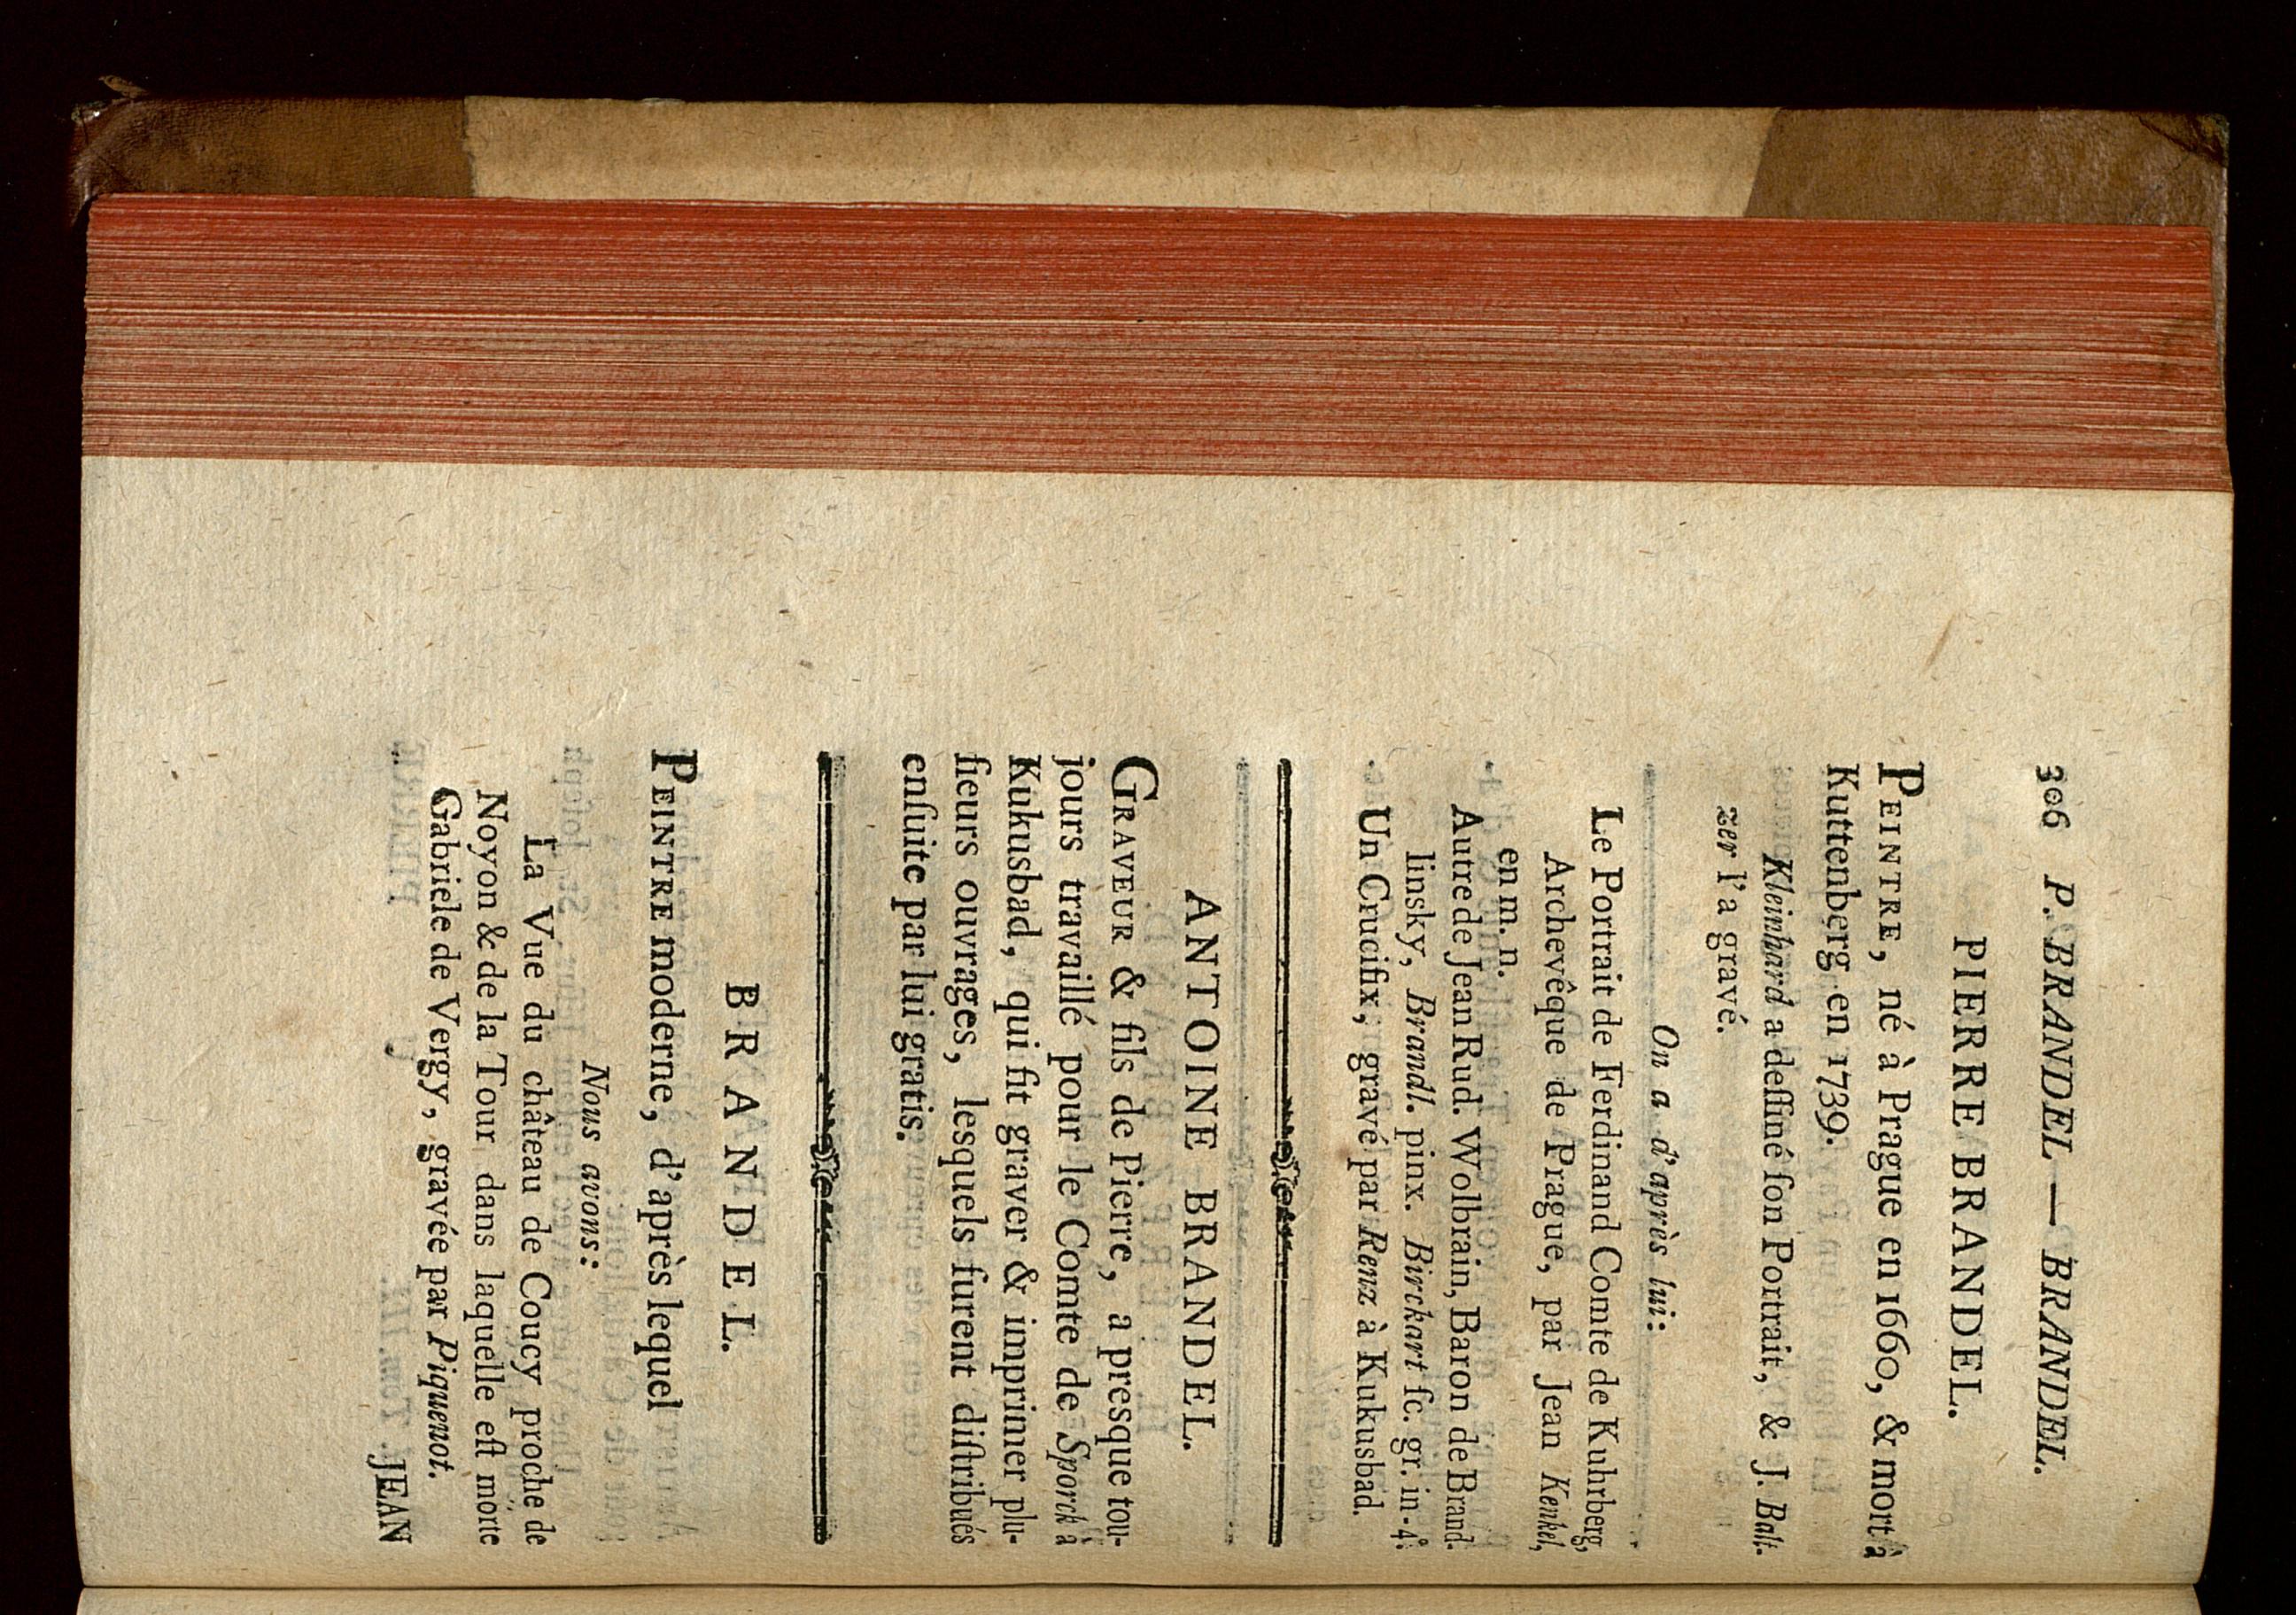 306 P. BRANDEL — BRANDEL.
PIERRE BRANDEL.
PEINTRE, né à Prague en 1660, & mort à
Kuttenberg en 1739.
Kleinhard a deſſiné ſon Portrait, & J. Balt-
zer l'a gravé.
On a d'après lui:
Le Portrait de Ferdinand Comte de Kuhrberg,
Archevêque de Prague, par Jean Kenkel,
en m. n.
Autre de Jean Rud. Wolbrain, Baron de Brand-
linsky, Brandl. pinx. Birckart ſc. gr. in-4º.
Un Crucifix, gravé par Renz à Kukusbad.
ANTOINE BRANDEL.
GRAVEUR & fils de Pierre, a presque tou-
jours travaillé pour le Comte de Sporck à
Kukusbad, qui fit graver & imprimer plu-
ſieurs ouvrages, lesquels furent diſtribués
enſuite par lui gratis.
BRANDEL.
PEINTRE moderne, d'après lequel
Nous avons:
La Vue du château de Coucy proche de
Noyon & de la Tour dans laquelle eſt morte
Gabriele de Vergy, gravée par Piquenot.
JEAN